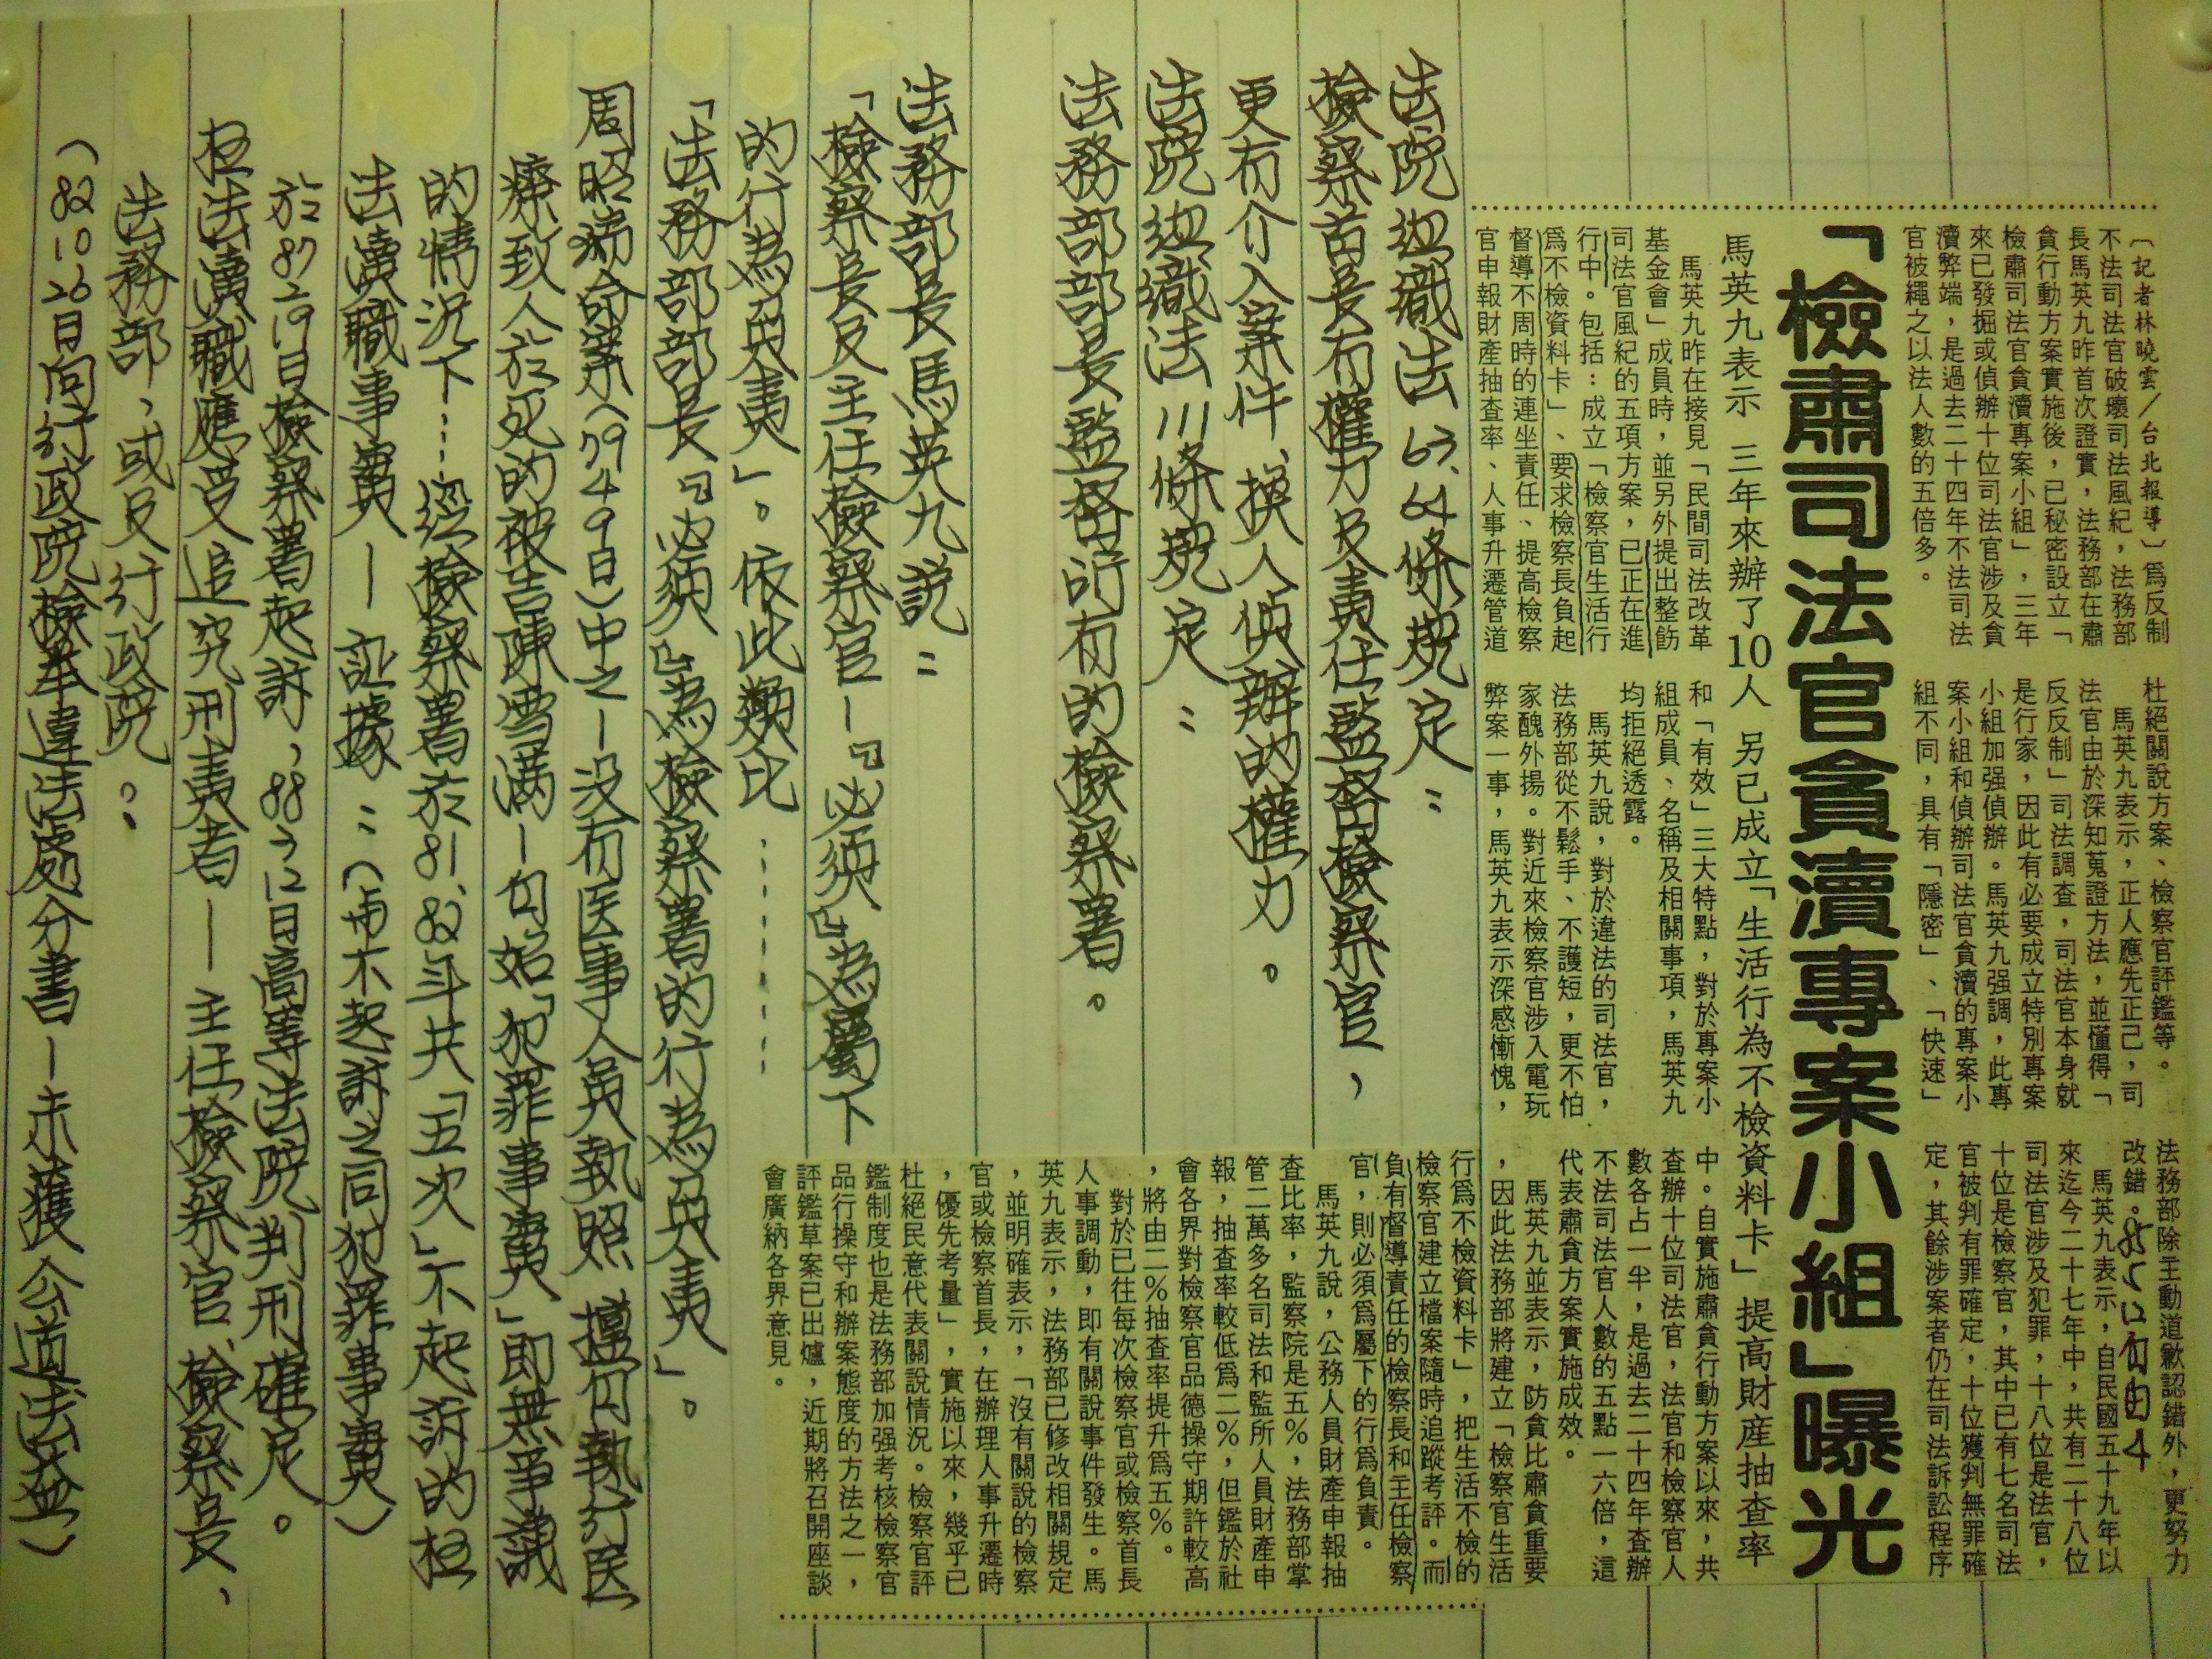 「檢肅司法官貪瀆專案小組」曝光
馬英九表示 三年來辦了10人 另已成立「生活行為不檢資料卡」 提高財產抽查率
〔記者林曉雲/台北報導〕爲反制
不法司法官破壞司法風紀,法務部
長馬英九昨首次證實,法務部在肅
貪行動方案實施後,已秘密設立「
檢肅司法官貪瀆專案小組」,三年
來已發掘或偵辦十位司法官涉及貪
瀆弊端,是過去二十四年不法司法
官被繩之以法人數的五倍多。
馬英九昨在接見「民間司法改革
基金會」成員時,並另外提出整飭
司法官風紀的五項方案,已正在進
行中。包括:成立「檢察官生活行
爲不檢資料卡」、要求檢察長負起
督導不周時的連坐責任、提高檢察
官申報財產抽查率、人事升遷管道
杜絕關說方案、檢察官評鑑等。
馬英九表示,正人應先正己,司
法官由於深知蒐證方法,並懂得「
反反制」司法調查,司法官本身就
是行家,因此有必要成立特別專案
小組加强偵辦。馬英九强調,此專
案小組和偵辦司法官貪瀆的專案小
組不同,具有「隱密」、「快速」
和「有效」三大特點,對於專案小
組成員、名稱及相關事項,馬英九
均拒絕透露。
馬英九說,對於違法的司法官,
法務部從不鬆手、不護短,更不怕
家醜外揚。對近來檢察官涉入電玩
弊案一事,馬英九表示深感慚愧,
法務部除主動道歉認錯外,更努力
改錯。
馬英九表示,自民國五十九年以
來迄今二十七年中,共有二十八位
司法官涉及犯罪,十八位是法官,
十位是檢察官,其中已有七名司法
官被判有罪確定,十位獲判無罪確
定,其餘涉案者仍在司法訴訟程序
中。自實施肅貪行動方案以來,共
查辦十位司法官,法官和檢察官人
數各占一半,是過去二十四年查辦
不法司法官人數的五點一六倍,這
代表肅貪方案實施成效。
馬英九並表示,防貪比肅貪重要
,因此法務部將建立「檢察官生活
行爲不檢資料卡」,把生活不檢的
檢察官建立檔案隨時追蹤考評。而
負有督導責任的檢察長和主任檢察
官,則必須爲屬下的行爲負責。
馬英九說,公務人員財產申報抽
查比率,監察院是五%,法務部掌
管二萬多名司法和監所人員財產申
報,抽查率較低爲二%,但鑑於社
會各界對檢察官品德操守期許較高
,將由二%抽查率提升爲五%。
對於已往每次檢察官或檢察首長
人事調動,即有關說事件發生。馬
英九表示,法務部已修改相關規定
,並明確表示,「沒有關說的檢察
官或檢察首長,在辦理人事升遷時
,優先考量」,實施以來,幾乎已
杜絕民意代表關說情況。檢察官評
鑑制度也是法務部加强考核檢察官
品行操守和辦案態度的方法之一,
評鑑草案已出爐,近期將召開座談
會廣納各界意見。
法院組織法63、64條規定:
檢察首長有權力及責任監督檢察官,
更有介入案件、換人偵辦的權力。
法院組織法111條規定:
法務部部長監督所有的檢察署。
法務部長馬英九說:
「檢察長及主任檢察官—『必須』為屬下
的行為負責」。依此類比……
「法務部部長『必須』為檢察署的行為負責」。
周照濟命案(79 4 9日)中之—没有医事人員執照 擅自執行医
療致人於死的被告陳雪滿—自始「犯罪事實」即無爭議
的情況下……經檢察署於81、82年共「五次」不起訴的枉
法瀆職事實—証據:(與不起訴之同犯罪事實)
於87 2 19日檢察署起訴,88 7 12日高等法院判刑確定。
枉法瀆職應受追究刑責者—主任檢察官、檢察長、
法務部,或及行政院。
(82 10 26日向行政院檢舉違法處分書—未獲公道法益)